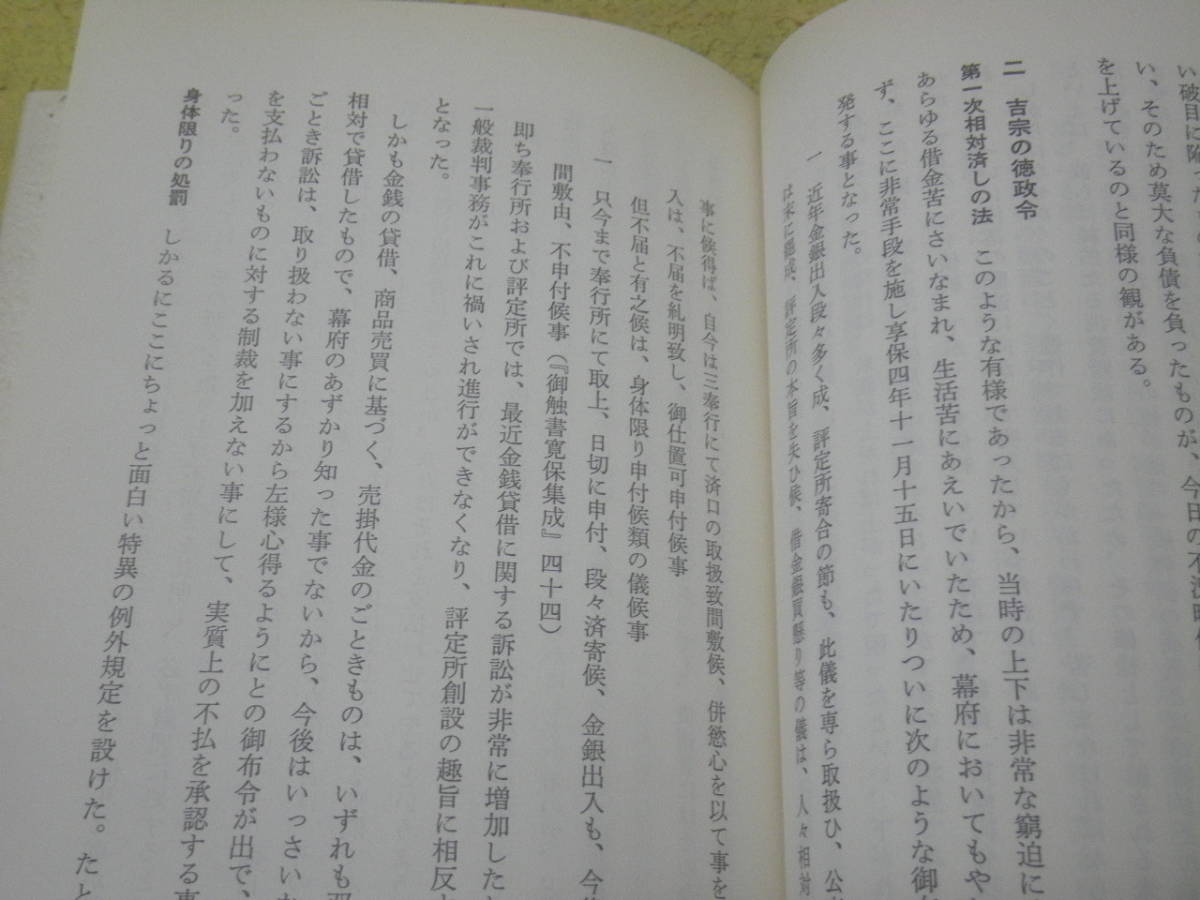 い、そのため莫大な負債を負ったものが、今日の不況時
を上げているのと同様の観がある。
二 吉宗の徳政令
第一次相対済しの法 このような有様であったから、当時の上下は非常な窮迫に
あらゆる借金苦にさいなまれ、生活苦にあえいでいたため、幕府においてもや
ず、ここに非常手段を施し享保四年十一月十五日にいたりついに次のような御
発する事となった。
一 近年金銀出入段々多く成、評定所寄合の節も、此儀を専ら取扱ひ、公
は末に罷成、評定所の本旨を失ひ候、借金銀買懸り等の儀は、人々相対
事に候得ば、自今は三奉行にて済口の取扱致間敷候、併慾心を以て事を
入は、不届を糺明致し、御仕置可申付候事
但不届と有之候は、身体限り申付候類の儀候事
一 只今まで奉行所にて取上、日切に申付、段々済寄候、金銀出入も、今
間敷由、不申付候事(『御触書寛保集成』四十四)
即ち奉行所および評定所では、最近金銭貸借に関する訴訟が非常に増加した
一般裁判事務がこれに禍いされ進行ができなくなり、評定所創設の趣旨に相反
となった。
しかも金銭の貸借、商品売買に基づく、売掛代金のごときものは、いずれも双
相対で貸借したもので、幕府のあずかり知った事でないから、今後はいっさい
ごとき訴訟は、取り扱わない事にするから左様心得るようにとの御布令が出で、
を支払わないものに対する制裁を加えない事にして、実質上の不払を承認する事
った。
身体限りの処罰 しかるにここにちょっと面白い特異の例外規定を設けた。たと